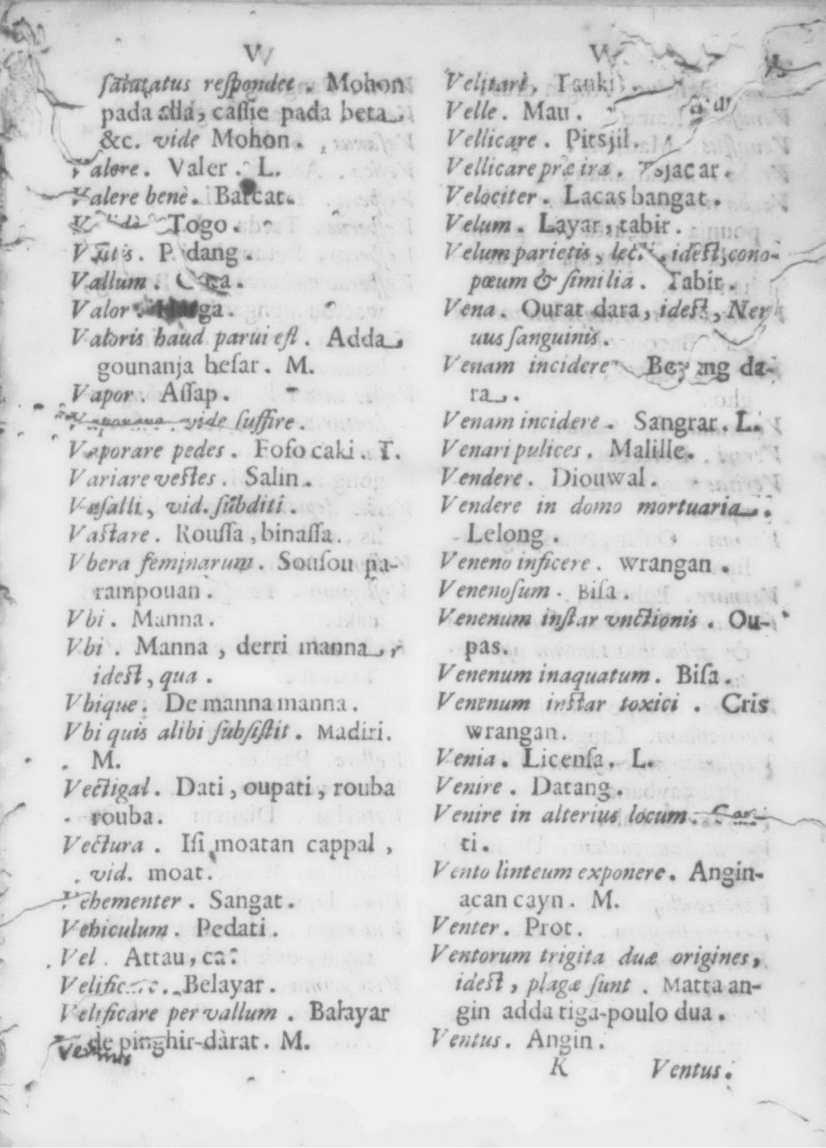 V
salutatus respondet. Mohon
pada alla, cassie pada beta
&c. vide Mohon.
Valore. Valer. L.
Valere benè. Barcat.
Togo.
Vallum.
Valor.
Valoris haud parui est. Adda
gounanja hesar. M.
Vapor. Assap.
vide suffire.
Vaporare pedes. Fofo caki. T.
Variare vestes. Salin.
Vasalli, vid. subditi.
Vastare. Roussa, binassa.
Vbera feminarum. Sousou pa-
rampouan.
Vbi. Manna.
Vbi. Manna, derri manna,
idest, qua.
Vbique. De manna manna.
Vbi quis alibi subsistit. Madiri.
M.
Vectigal. Dati, oupati, rouba
rouba.
Vectura. Isi moatan cappal,
vid. moat.
Vehementer. Sangat.
Vehiculum. Pedati.
Vel. Attau, ca?
Belayar.
Velificare per vallum. Balayar
de pinghir-dàrat. M.
V
Velitari. Tauki.
Velle. Mau.
Vellicare. Pitsjil.
Vellicare præ ira. Tsjacar.
Velociter. Lacas bangat.
Velum. Layar, tabir.
Velum parietis, idest, cono-
pœum & similia. Tabir.
Vena. Ourat dara, idest, Ner
uus sanguinis.
Venam incidere da-
ra.
Venam incidere. Sangrar. L.
Venari pulices. Malille.
Vendere. Diouwal.
Vendere in domo mortuaria.
Lelong.
Veneno inficere. wrangan.
Venenosum. Bisa.
Venenum instar vnctionis. Ou-
pas.
Venenum inaquatum. Bisa.
Venenum instar toxici. Cris
wrangan.
Venia. Licensa. L.
Venire. Datang.
Venire in alterius locum. Gan-
ti.
Vento linteum exponere. Angin-
acan cayn. M.
Venter. Prot.
Ventorum trigita duæ origines,
idest, plagæ sunt. Matta an-
gin adda tiga-poulo dua.
Ventus. Angin.
K Ventus.